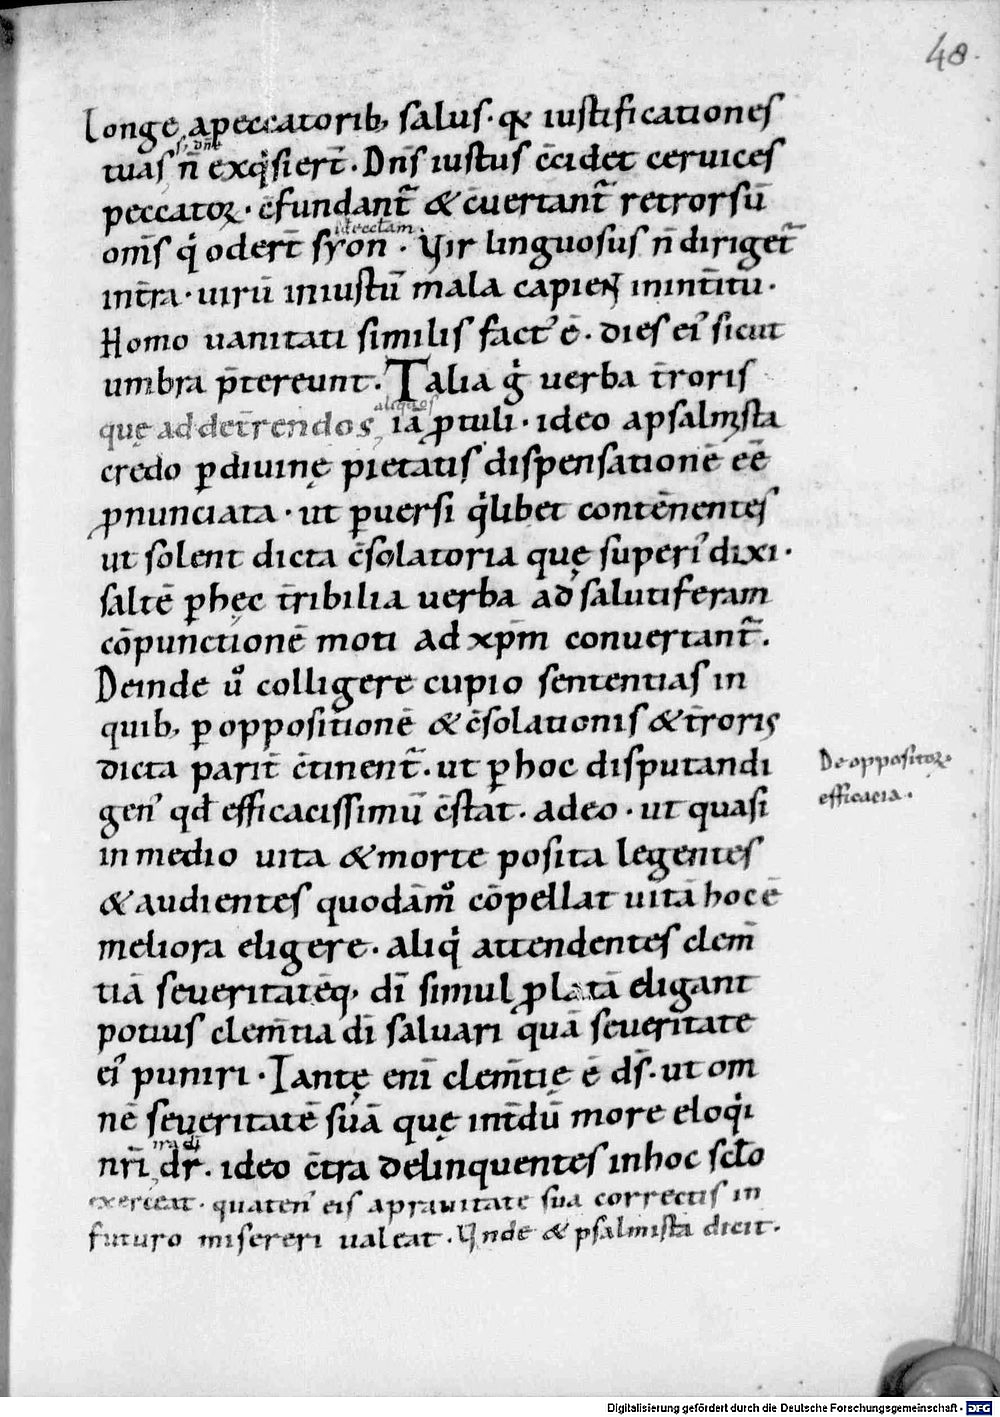 48.
Longe apeccatorib; salus· qꝛ iustificationes
tuas n̄ exqͥsierт̄· Dn̄s iustus c̄cidet ceruices
peccatoꝝ· c̄fundant᷑ & c̄uertant᷑ retrorsū
om̄s qͥ odert̄ syon· Vir linguosus n̄ diriget᷑
int̄ra· uirū iniustū mala capient inint̄itu·
Homo uanitati similis factꝰ ē· dies eiꝰ sicut
umbra p̄tereunt· Talia gͥ uerba t̄roris
quę addet̄rendos aliquos iā ꝓtuli· ideo apsalmista
credo ꝑdiuinę pietatis dispensationē eē
ꝓnunciata· ut ꝑuersi qͥlibet contēnentes
ut solent dicta c̄solatoria quę superiꝰ dixi·
saltē ꝑhęc t̄ribilia uerba ad salutiferam
cōpunctionē moti ad xp̄m conuertant᷑.
Deinde uͦ colligere cupio sententias in
quib; ꝑ oppositionē & c̄solationis & t̄roris
dicta parit̄ c̄tinent᷑· ut ꝑ hoc disputandi
De oppositoꝝ
genꝰ qđ efficacissimū c̄stat· adeo· ut quasi
efficacia·
in medio uita & morte posita legentes
& audientes quodām̊ cōpellat uitā hoc ē
meliora eligere· aliqͥ attendentes clem̄
tiā seueritatēq; dī simul ꝓlatā eligant
potius clem̄tia dī saluari quā seueritate
eiꝰ puniri· Tantę enī clem̄tię ē ds̄· ut om
nē seueritatē suā quę int̄dū more eloqͥi
nr̄i ira dī dr̄· ideo c̄tra delinquentes inhoc sclo
exerceat· quatenꝰ eis aprauitate sua correctis in
futuro misereri ualeat· Vnde & psalmista dicit·
Digitalisierung gefördert durch die Deutsche Forschungsgemeinschaft - DFG